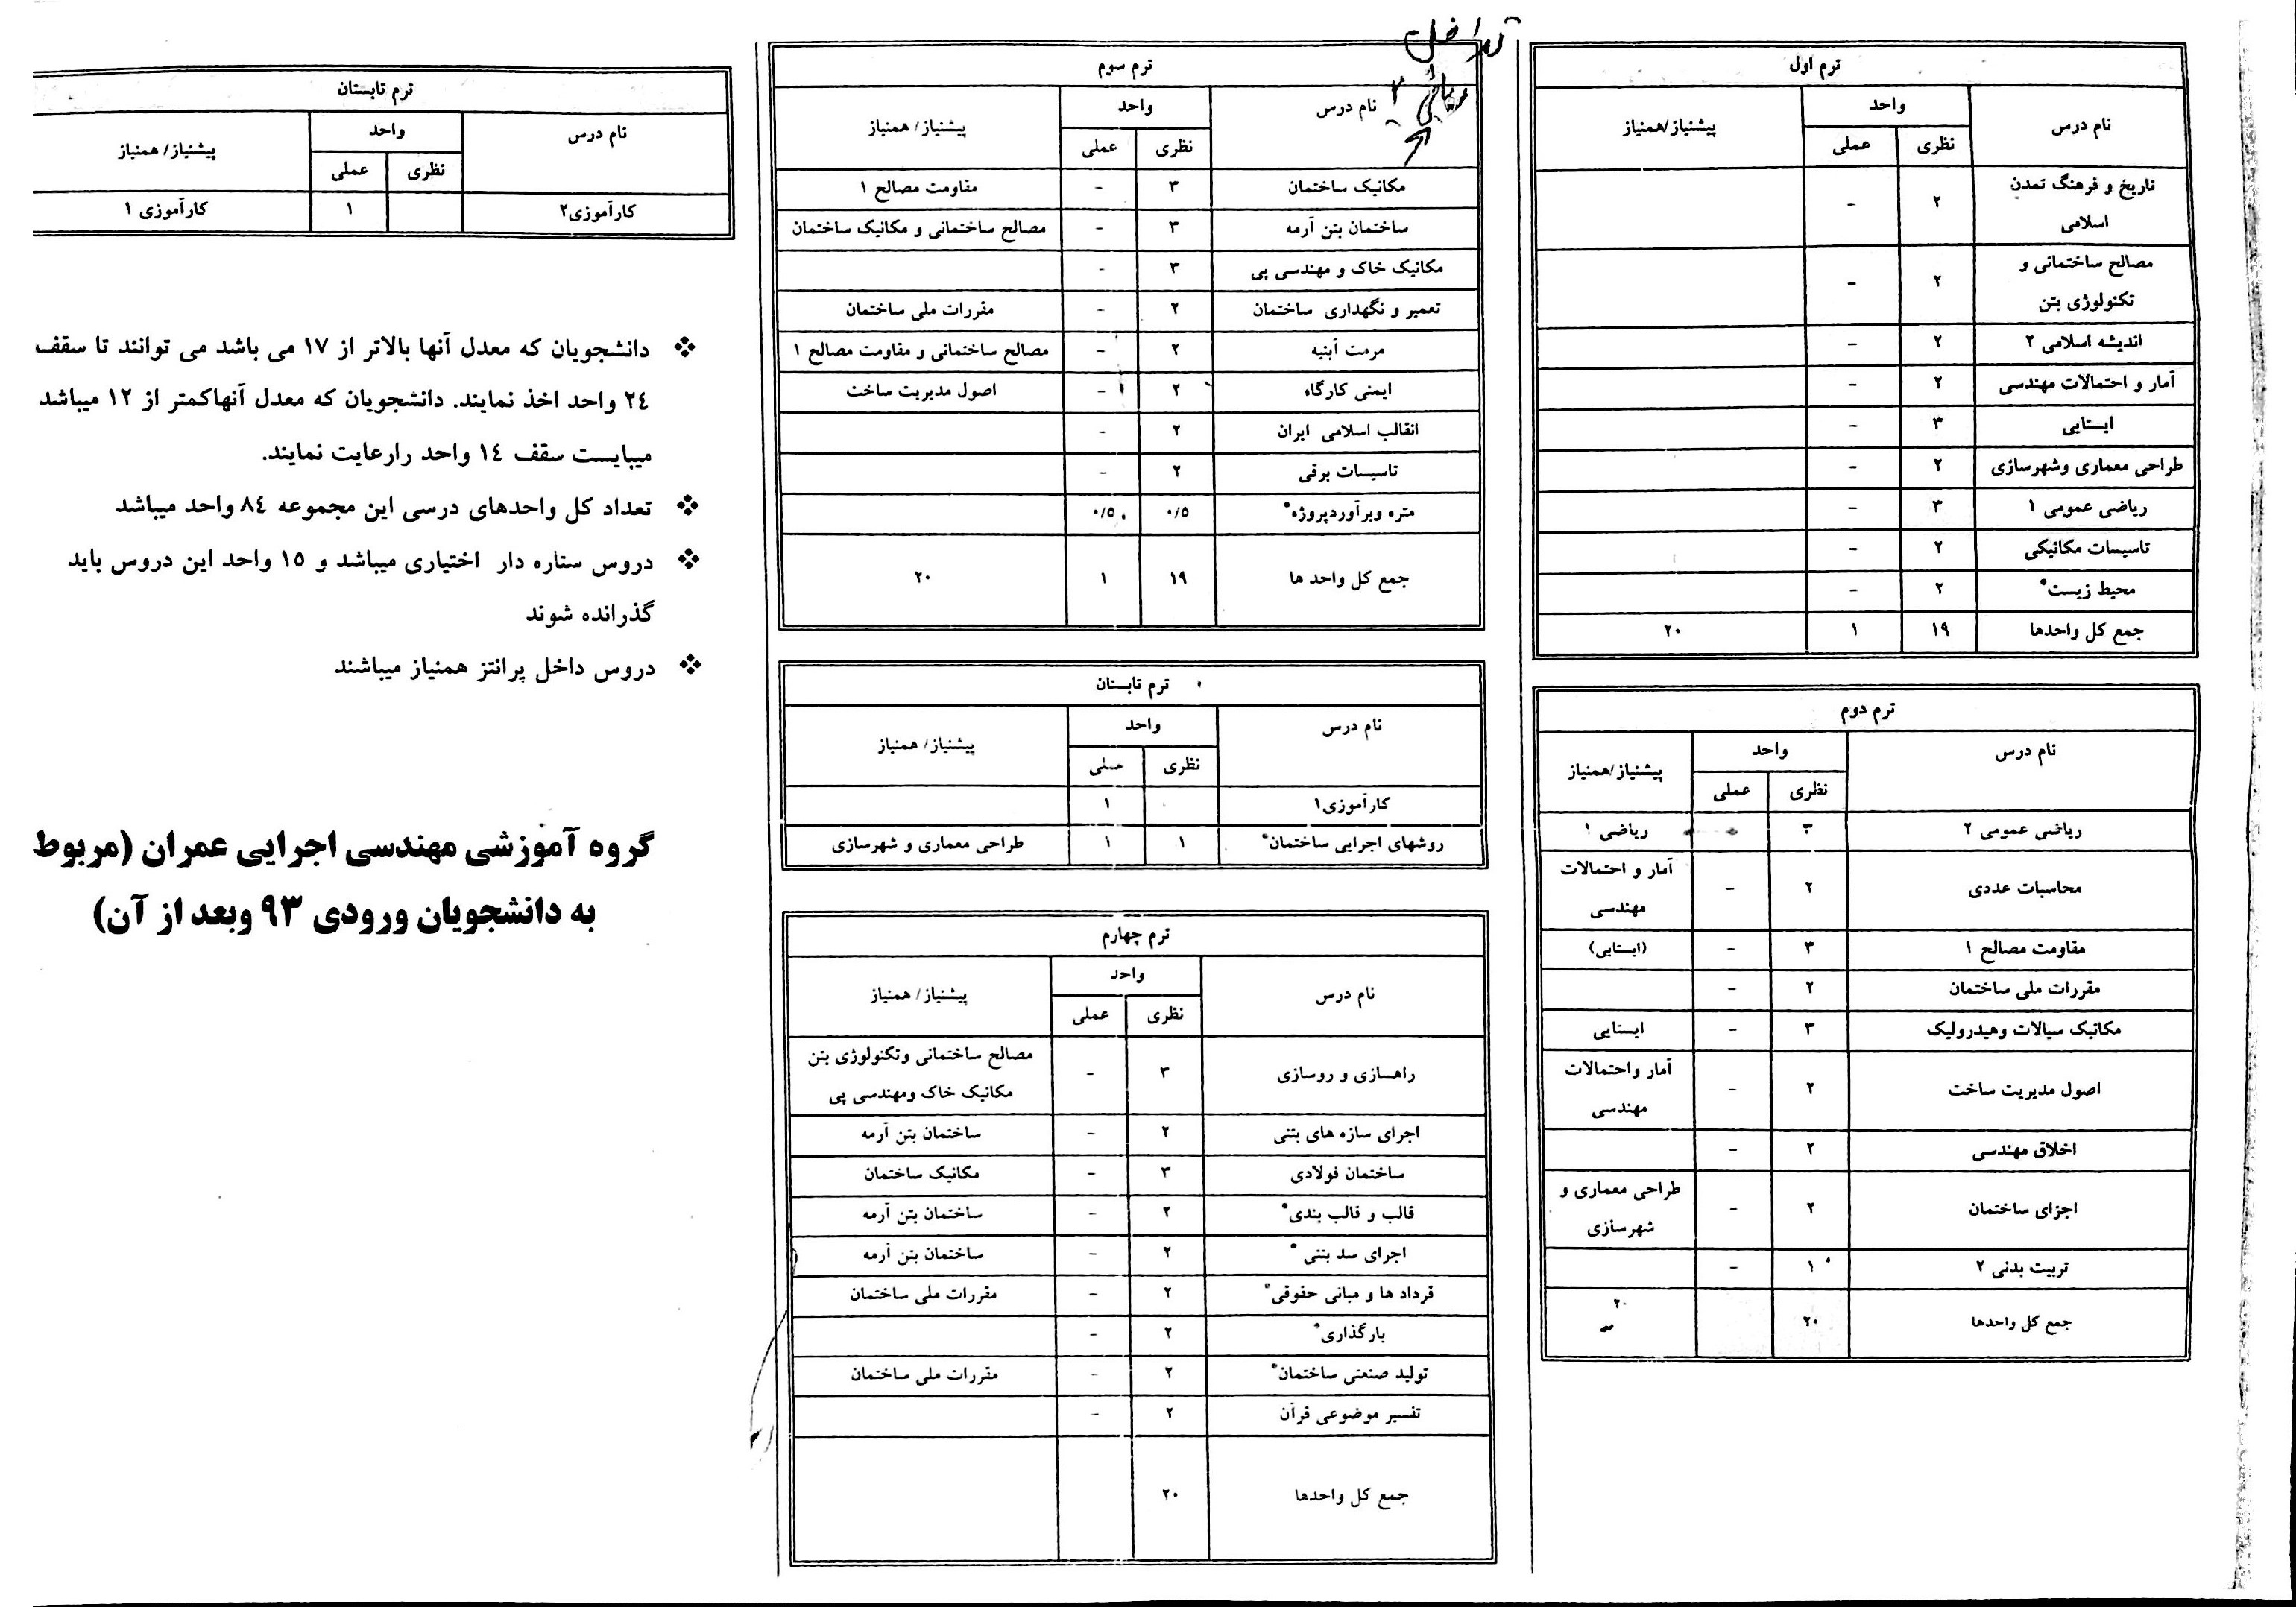 ترم اول
نام درس واحد پیشنیاز/همنیاز
نظری عملی
تاریخ و فرهنگ تمدن اسلامی ۲ -
مصالح ساختمانی و تکنولوژی بتن ۲ -
اندیشه اسلامی ۲ ۲ -
آمار و احتمالات مهندسی ۲ -
ایستایی ۳ -
طراحی معماری وشهرسازی ۲ -
ریاضی عمومی ۱ ۳ -
تاسیسات مکانیکی ۲ -
محیط زیست* ۲ -
جمع کل واحدها ۱۹ ۱ ۲۰
ترم دوم
نام درس واحد پیشنیاز/همنیاز
نظری عملی
ریاضی عمومی ۲ ۳ - ریاضی ۱
محاسبات عددی ۲ - آمار و احتمالات مهندسی
مقاومت مصالح ۱ ۳ - (ایستایی)
مقررات ملی ساختمان ۲ -
مکانیک سیالات وهیدرولیک ۳ - ایستایی
اصول مدیریت ساخت ۲ - آمار واحتمالات مهندسی
اخلاق مهندسی ۲ -
اجزای ساختمان ۲ - طراحی معماری و شهرسازی
تربیت بدنی ۲ ۱ -
جمع کل واحدها ۲۰ ۲۰
ترم سوم
نام درس واحد پیشنیاز/ همنیاز
نظری عملی
مکانیک ساختمان ۳ - مقاومت مصالح ۱
ساختمان بتن آرمه ۳ - مصالح ساختمانی و مکانیک ساختمان
مکانیک خاک و مهندسی پی ۳ -
تعمیر و نگهداری ساختمان ۲ - مقررات ملی ساختمان
مرمت آبنیه ۲ - مصالح ساختمانی و مقاومت مصالح ۱
ایمنی کارگاه ۲ - اصول مدیریت ساخت
انقالب اسلامی ایران ۲ -
تاسیسات برقی ۲ -
متره وبرآوردپروژه* ۰/۵ ۰/۵
جمع کل واحد ها ۱۹ ۱ ۲۰
ترم تابستان
نام درس واحد پیشنیاز/ همنیاز
نظری عملی
کارآموزی۱ ۱
روشهای اجرایی ساختمان* ۱ ۱ طراحی معماری و شهرسازی
ترم چهارم
نام درس واحد پیشنیاز/ همنیاز
نظری عملی
راهسازی و روسازی ۳ - مصالح ساختمانی وتکنولوژی بتن مکانیک خاک ومهندسی پی
اجرای سازه های بتنی ۲ - ساختمان بتن آرمه
ساختمان فولادی ۳ - مکانیک ساختمان
قالب و قالب بندی* ۲ - ساختمان بتن آرمه
اجرای سد بتنی * ۲ - ساختمان بتن آرمه
قرداد ها و مبانی حقوقی* ۲ - مقررات ملی ساختمان
بارگذاری* ۲ -
تولید صنعتی ساختمان* ۲ - مقررات ملی ساختمان
تفسیر موضوعی قرآن ۲ -
جمع کل واحدها ۲۰
ترم تابستان
نام درس واحد پیشنیاز/ همنیاز
نظری عملی
کارآموزی۲ ۱ کارآموزی ۱
❖ دانشجویان که معدل آنها بالاتر از ۱۷ می باشد می توانند تا سقف
۲٤ واحد اخذ نمایند. دانشجویان که معدل آنهاکمتر از ۱۲ میباشد
میبایست سقف ۱٤ واحد رارعایت نمایند.
❖ تعداد کل واحدهای درسی این مجموعه ۸٤ واحد میباشد
❖ دروس ستاره دار اختیاری میباشد و ۱۵ واحد این دروس باید
گذرانده شوند
❖ دروس داخل پرانتز همنیاز میباشند
گروه آموزشی مهندسی اجرایی عمران (مربوط
به دانشجویان ورودی ۹۳ وبعد از آن)